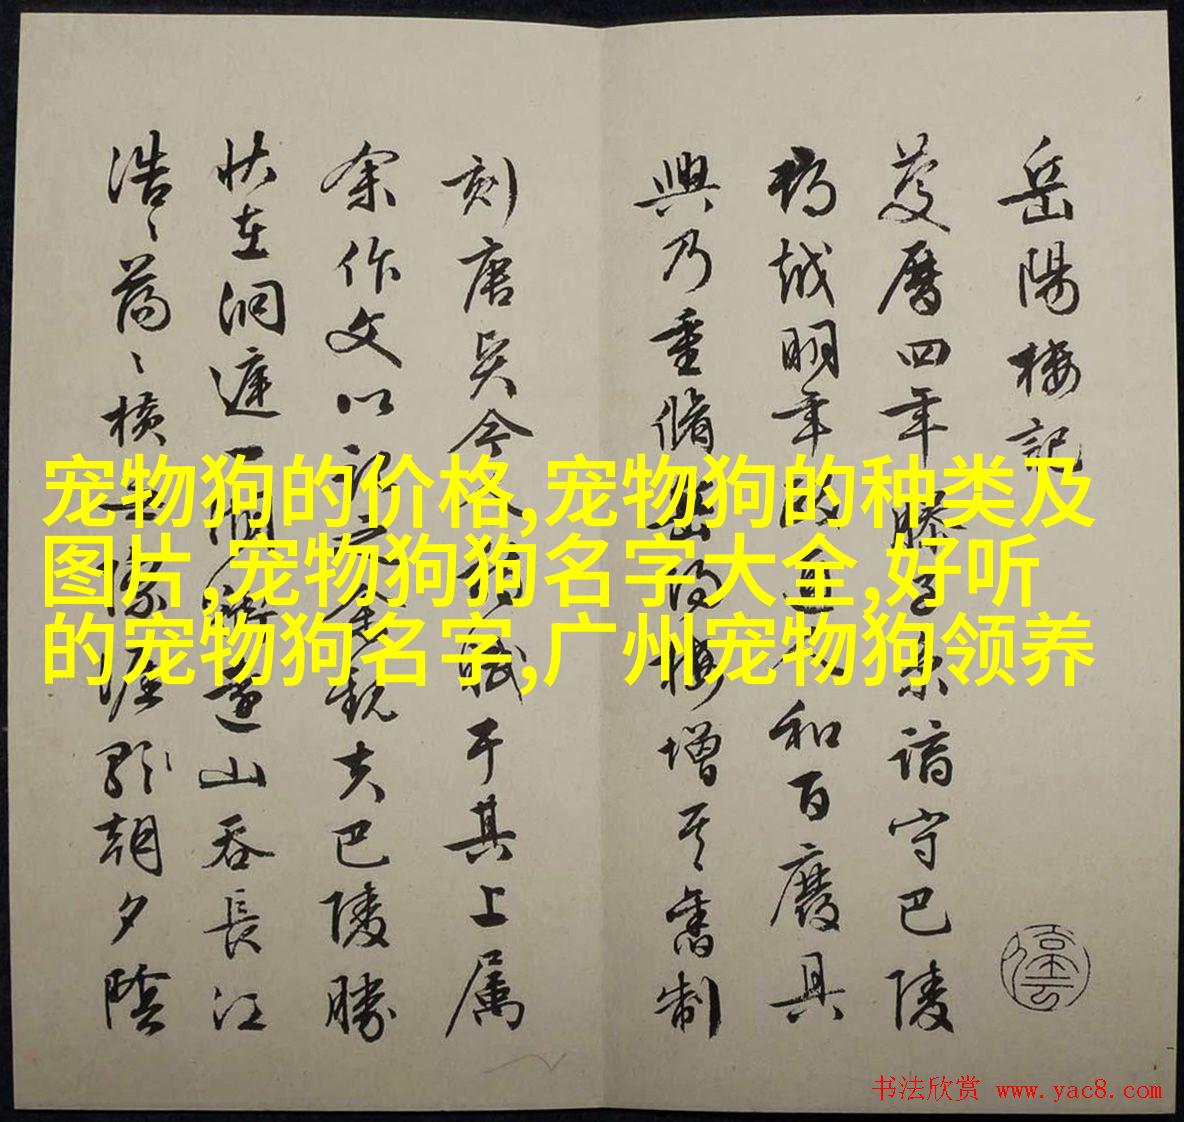 岳陽樓記
慶曆四年滕子京謫守巴陵
郡越明年政通人和百廢具
興乃重脩岳陽樓增其舊制
刻唐賢今人詩賦于其上屬
余作文以記之予觀夫巴陵勝
狀在洞庭一湖銜遠山吞長江
浩〻蕩〻橫無際涯朝夕陰
宠物狗的价格,宠物狗的种类及
图片,宠物狗狗名字大全,好听
的宠物狗名字,广州宠物狗领养
书法欣赏 www.yac8.com